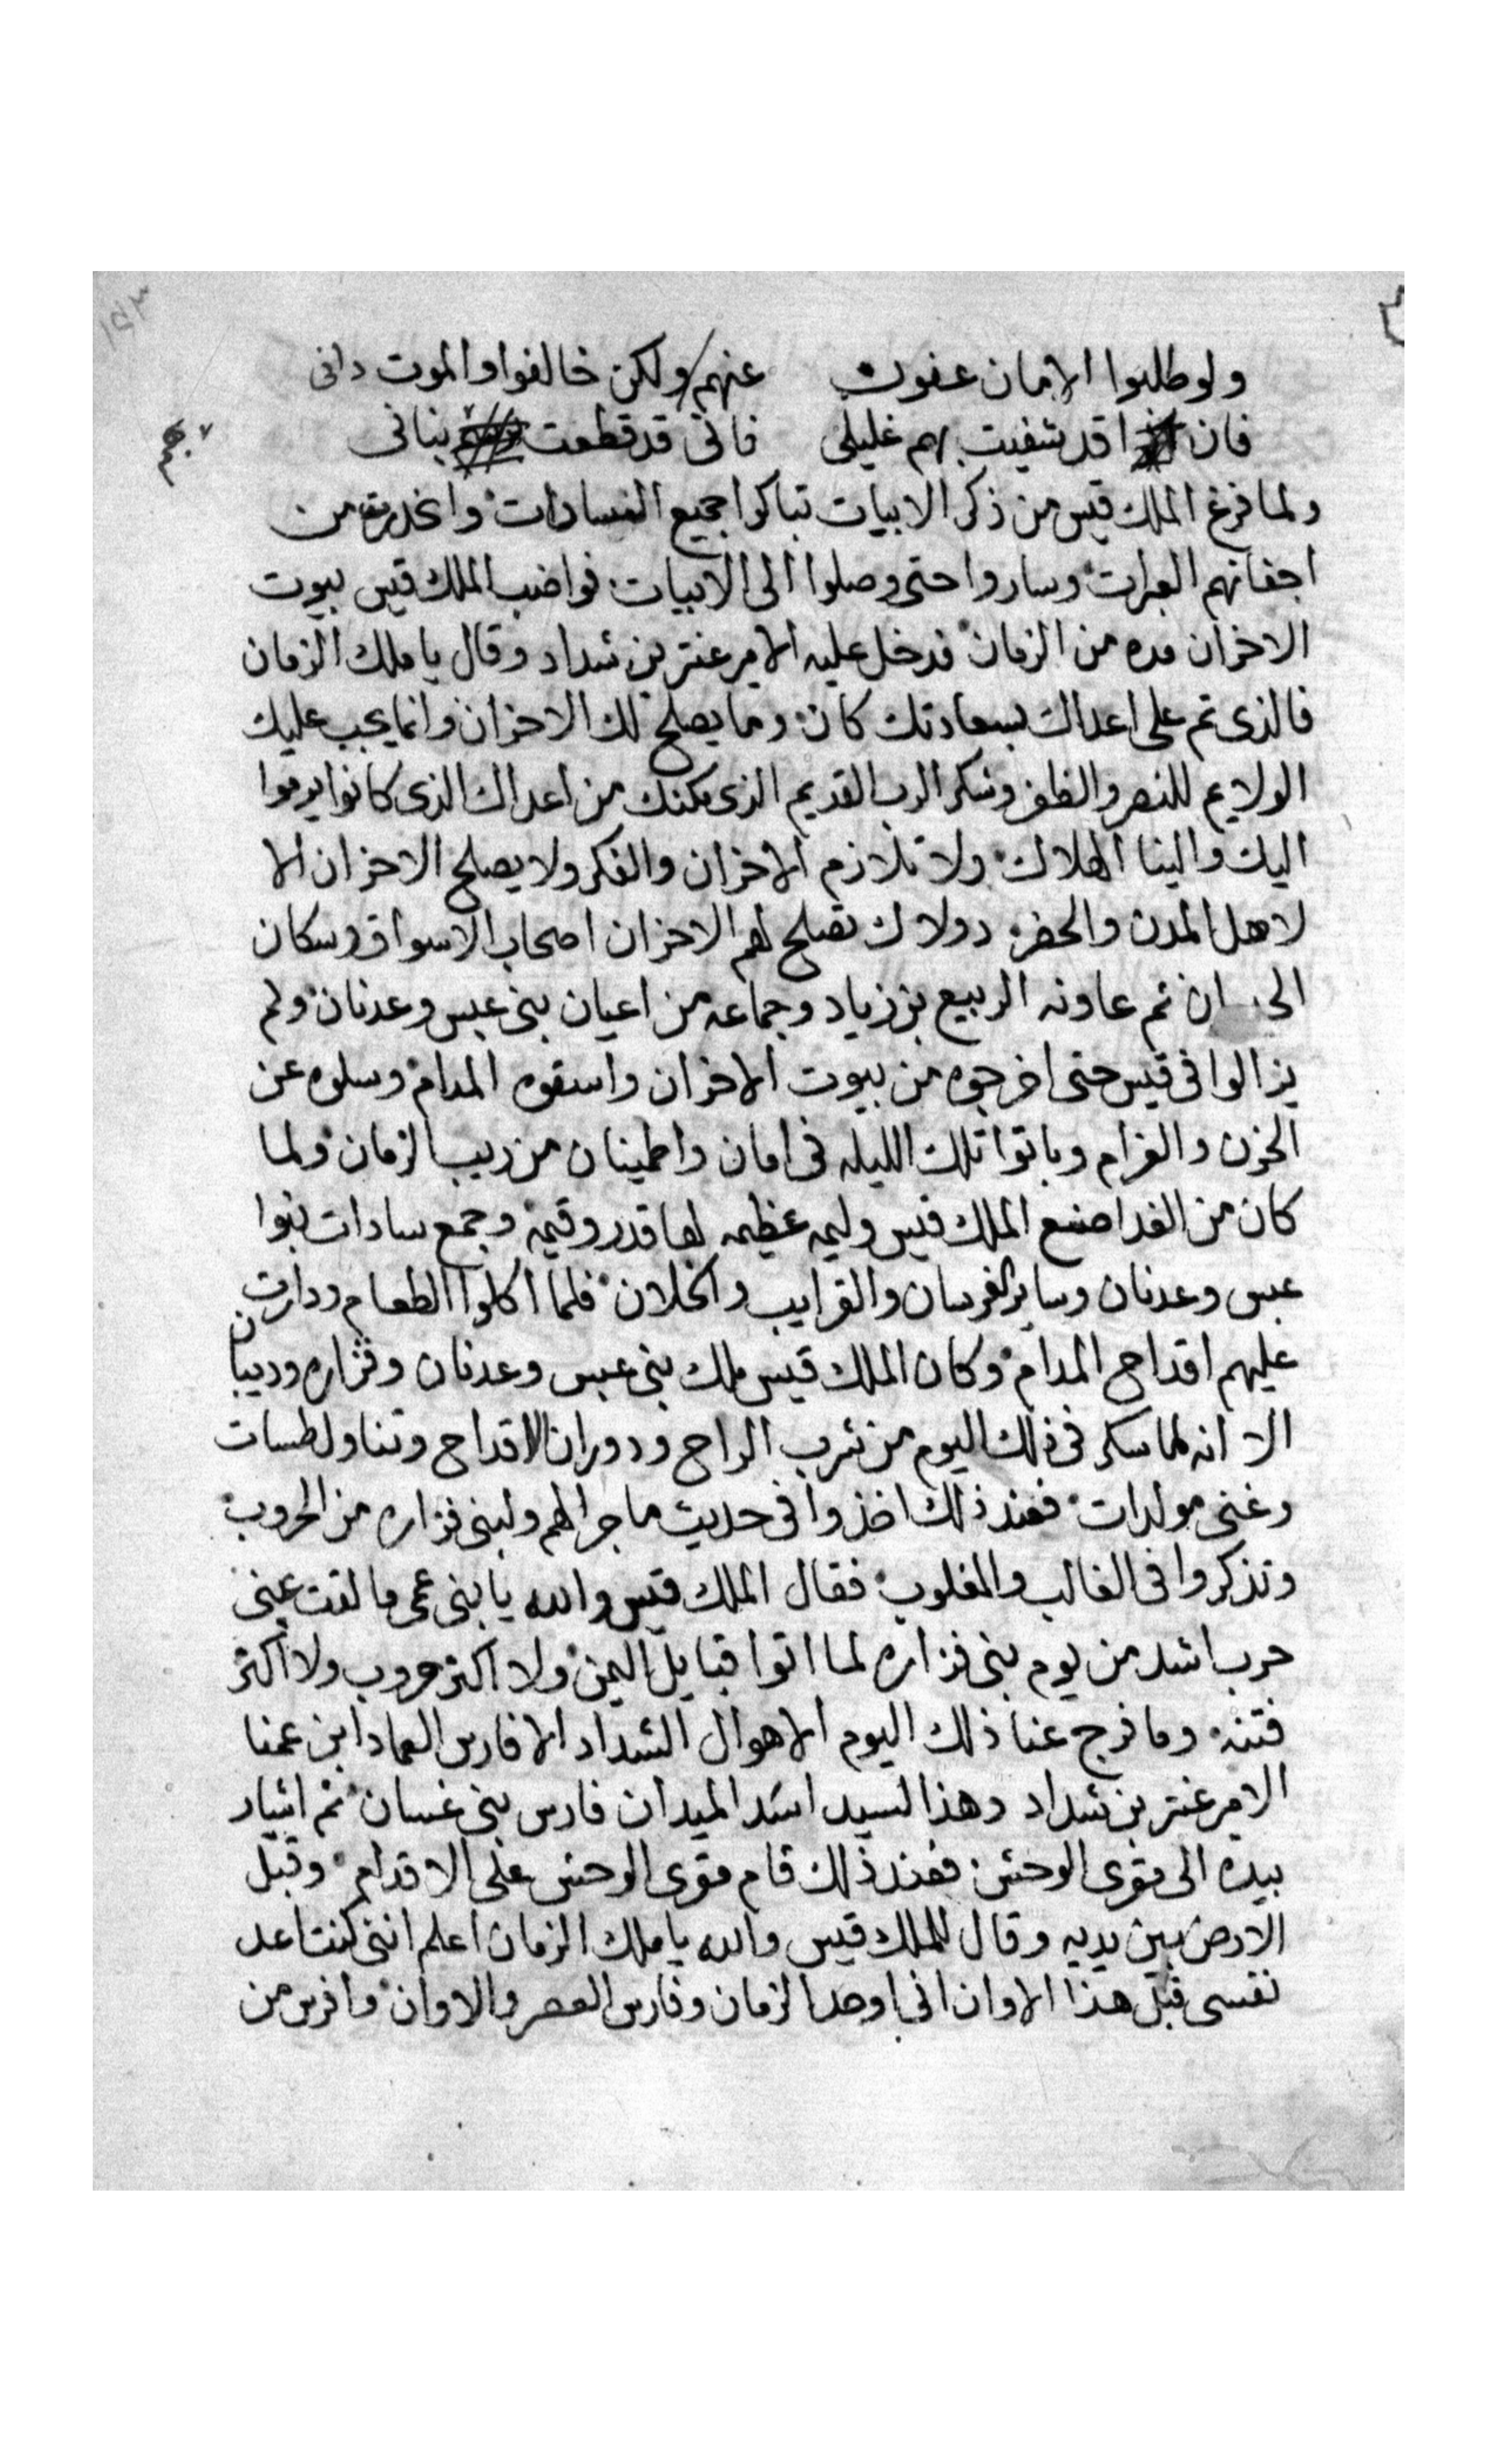 ١٥٣
ولو طلبوا الامان عفوت عنهم ولكن خالفوا والموت داني
فان قد شفيت بهم غليلى فانى قد قطعت بنانى
بهم
ولما فرغ الملك قيس من ذكر الابيات تباكوا جميع السادات وانحدرت من
اجفانهم العبرات وساروا حتى وصلوا الى الابيات فواضب الملك قيس بيوت
الاحزان مده من الزمان فدخل عليه الامير عنتر بن شداد وقال يا ملك الزمان
فالذى تم على اعداك بسعادتك كان وما يصلح لك الاحزان وانما يجب عليك
الولايم للنصر والظفر وشكر الرب القديم الذى مكنك من اعداك الذى كانوا يرموا
اليك والينا الهلاك ولا تلازم الاحزان والفكر ولا يصلح الاحزان الا
لاهل المدن والحضر دولاك تصلح لهم الاحزان اصحاب الاسواق وسكان
ثم عاونه الربيع بن زياد وجماعه من اعيان بنى عبس وعدنان ولم
يزالوا فى قيس حتى اخرجوه من بيوت الاحزان واسقوه المدام وسلوه عن
الحزن والغرام وباتوا تلك الليله فى امان واطمينان من ريب الزمان ولما
كان من الغد اصنع الملك قيس وليمه عظيمه لها قدر وقيمه وجمع سادات بنوا
عبس وعدنان وساير الفرسان والقرايب والخلان فلما اكلوا الطعام ودارت
عليهم اقداح المدام وكان الملك قيس ملك بنى عبس وعدنان وفزاره وديبان
الا انه لما سكر فى ذلك اليوم من شرب الراح ودوران الاقداح وتناول طسات
وغنى مولدات فعند ذلك اخذوا فى حديث ما جرا لهم ولبنى فزاره من الحروب
وتذكروا فى الغالب والمغلوب فقال الملك قيس والله يا بنى عمى ما لقت عينى
حرب اشد من يوم بنى فزاره لما اتوا قبايل اليمن ولا اكتر حروب ولا اكتر
فتنه وما فرج عنا ذلك اليوم الاهوال الشداد الا فارس العماد ابن عمنا
الامير عنتر بن شداد وهذا السيد اسد الميدان فارس بنى غسان ثم اشار
بيده الى مقرى الوحش فعند ذلك قام مقرى الوحش على الاقدام وقبل
الارض بين يديه وقال للملك قيس والله يا ملك الزمان اعلم اننى كنت اعد
نفسى قبل هذا الاوان انى اوحد الزمان وفارس العصر والاوان وافرس من